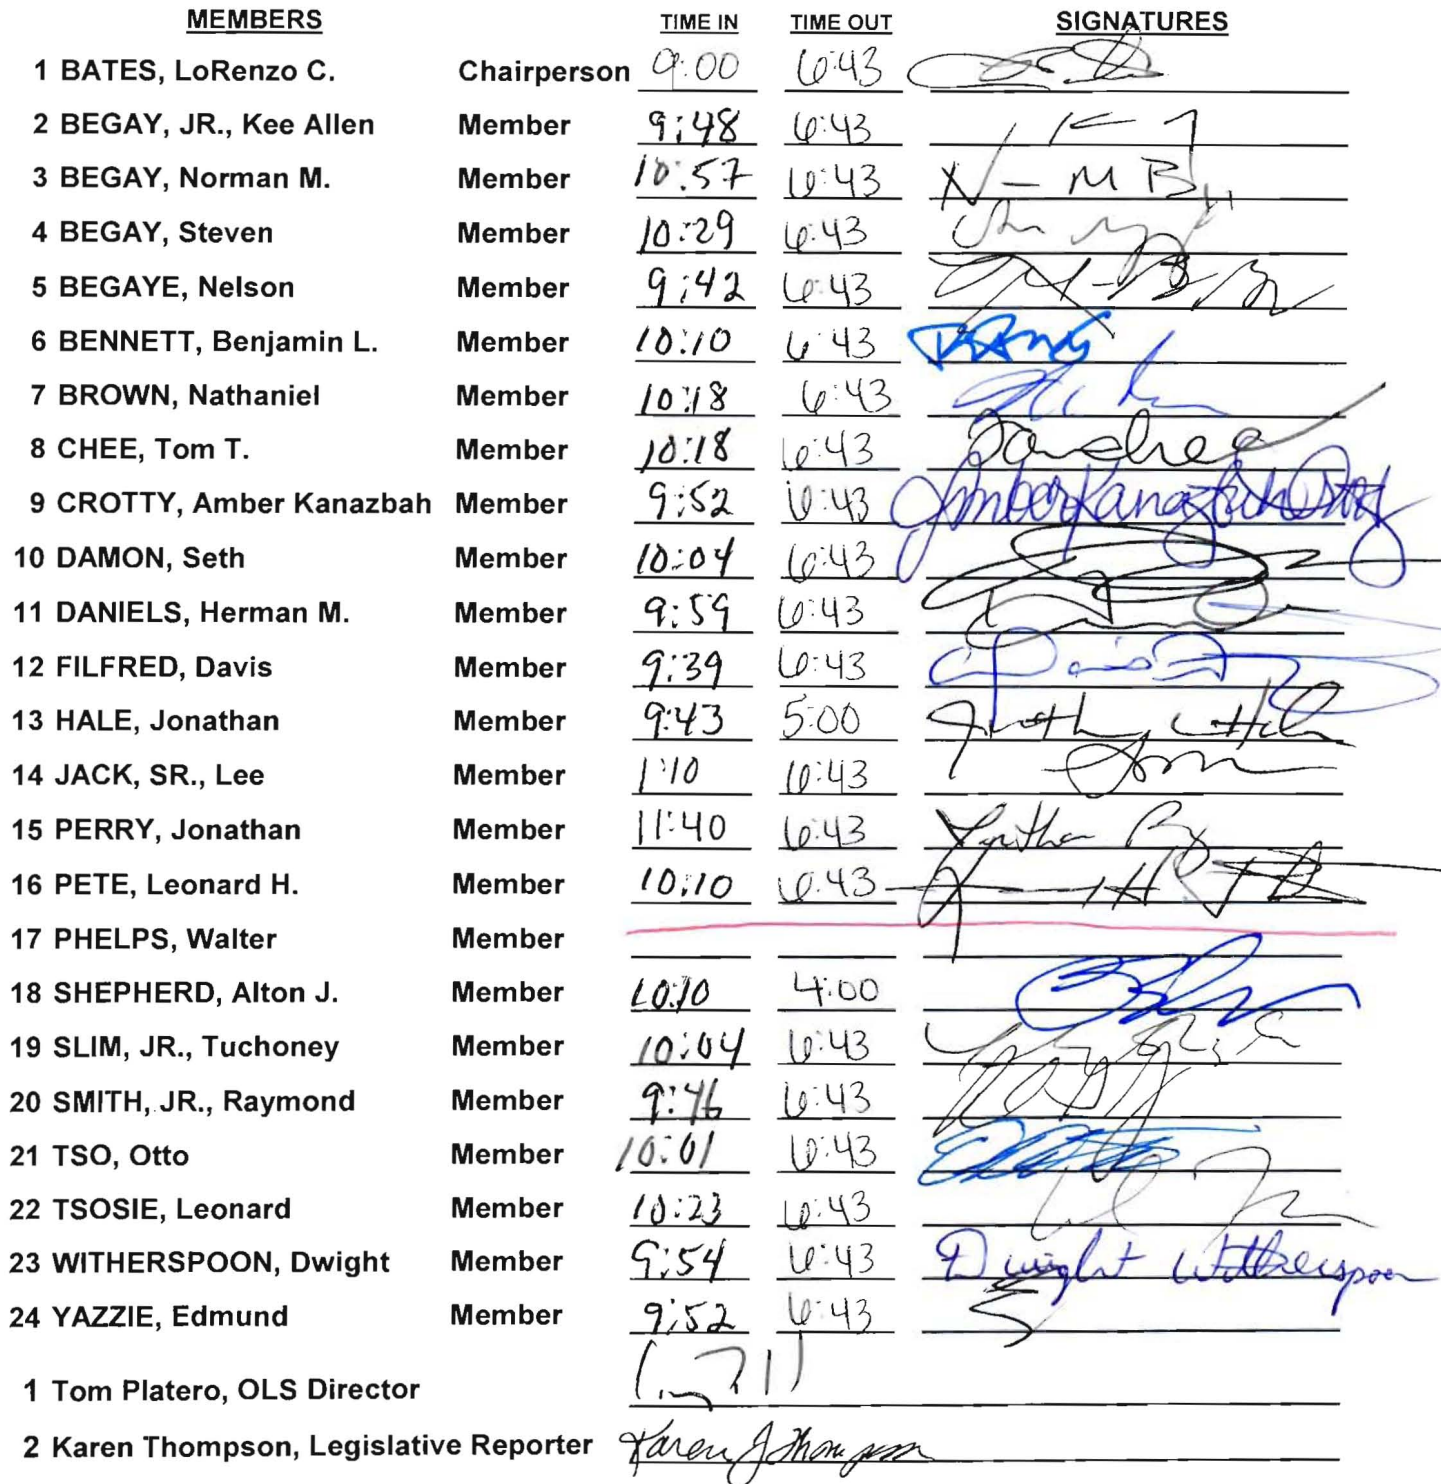 MEMBERS TIME IN TIME OUT SIGNATURES
1 BATES, LoRenzo C. Chairperson 9:00 6:43
2 BEGAY, JR., Kee Allen Member 9:48 6:43
3 BEGAY, Norman M. Member 10:57 6:43 N - M B
4 BEGAY, Steven Member 10:29 6:43
5 BEGAYE, Nelson Member 9:42 6:43
6 BENNETT, Benjamin L. Member 10:10 6:43
7 BROWN, Nathaniel Member 10:18 6:43
8 CHEE, Tom T. Member 10:18 6:43 Tom Chee
9 CROTTY, Amber Kanazbah Member 9:52 6:43 Amber Kanazbah Crotty
10 DAMON, Seth Member 10:04 6:43
11 DANIELS, Herman M. Member 9:59 6:43
12 FILFRED, Davis Member 9:39 6:43 Davis
13 HALE, Jonathan Member 9:43 5:00
14 JACK, SR., Lee Member 1:10 6:43
15 PERRY, Jonathan Member 11:40 6:43
16 PETE, Leonard H. Member 10:10 6:43
17 PHELPS, Walter Member
18 SHEPHERD, Alton J. Member 10:10 4:00
19 SLIM, JR., Tuchoney Member 10:04 6:43
20 SMITH, JR., Raymond Member 9:46 6:43
21 TSO, Otto Member 10:01 6:43
22 TSOSIE, Leonard Member 10:23 6:43
23 WITHERSPOON, Dwight Member 9:54 6:43 Dwight Witherspoon
24 YAZZIE, Edmund Member 9:52 6:43
1 Tom Platero, OLS Director
2 Karen Thompson, Legislative Reporter Karen J Thompson